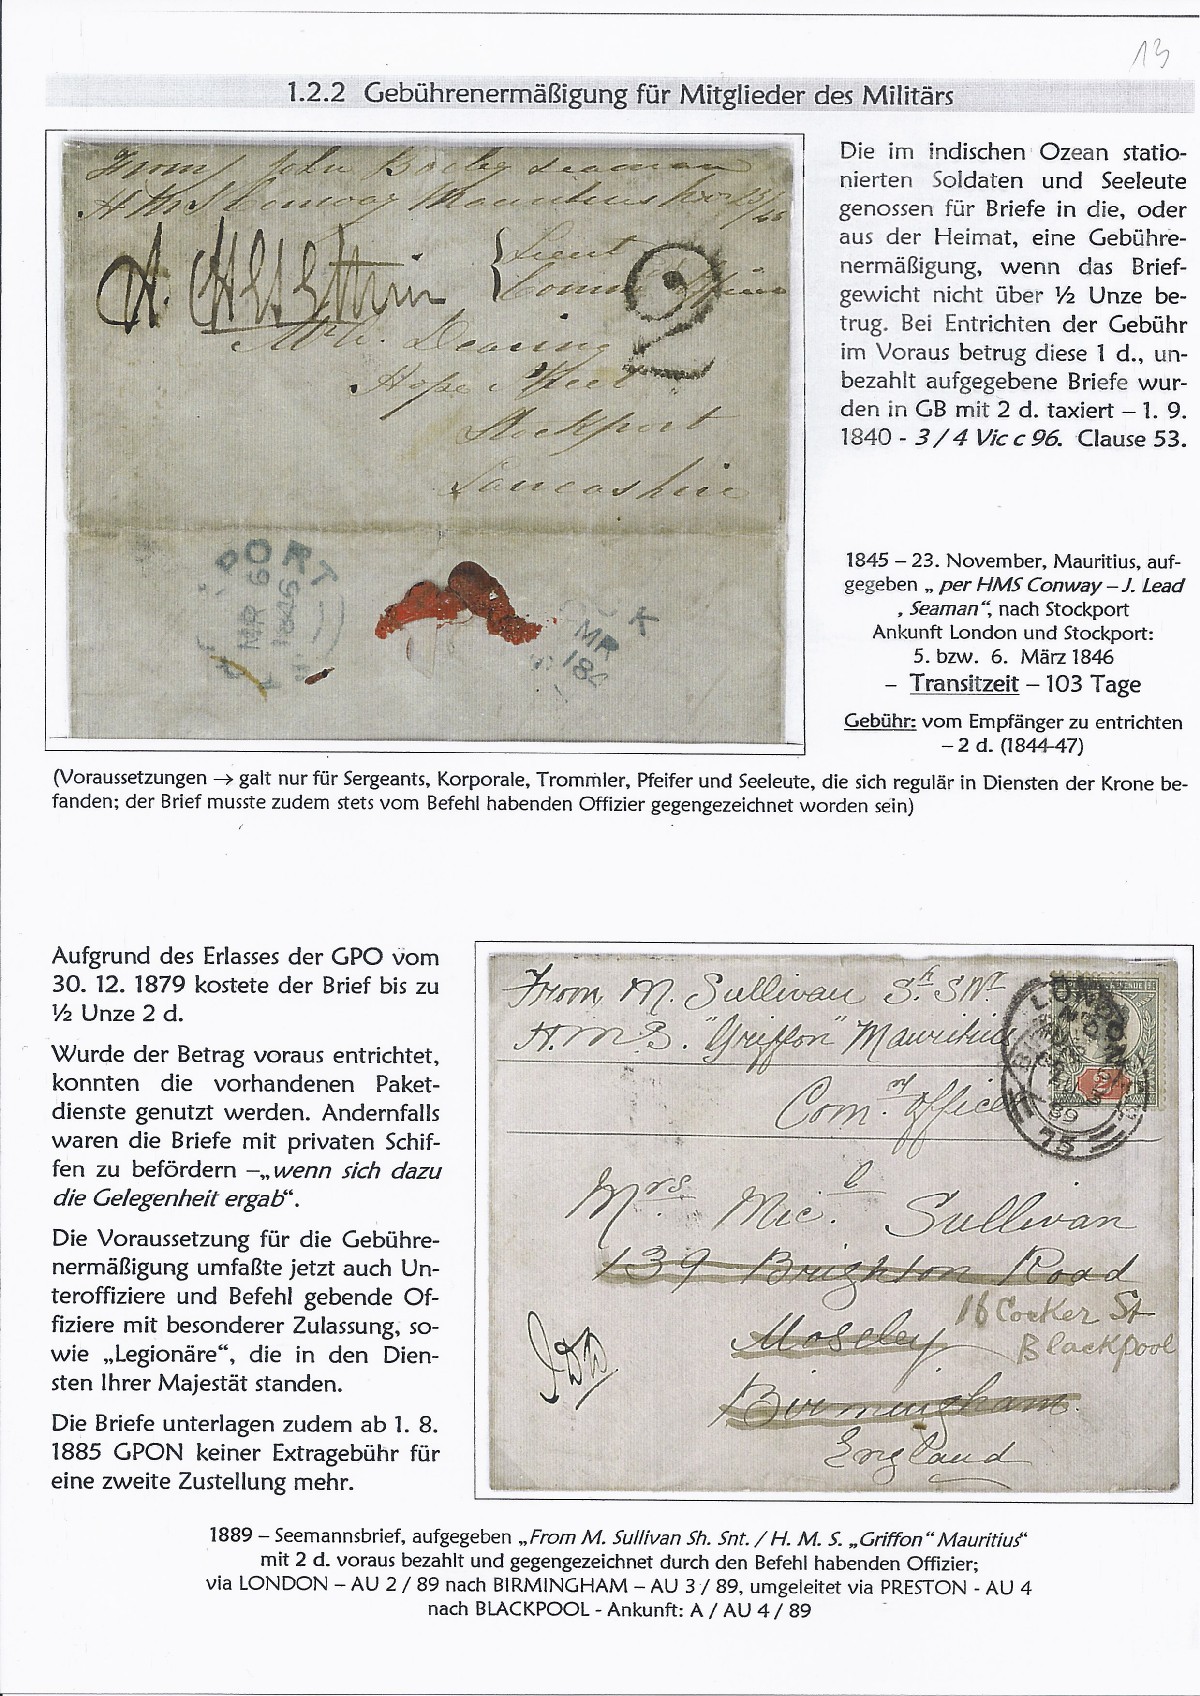 13
1.2.2 Gebührenermäßigung für Mitglieder des Militärs
From John Seaman
HMS Conway Mauritius Nov 23/45
Lieut
2
Mr
Hope
Stockport
Lancashire
PORT
MR 6
1846
MR
184
K
Die im indischen Ozean statio-
nierten Soldaten und Seeleute
genossen für Briefe in die, oder
aus der Heimat, eine Gebühre-
nermäßigung, wenn das Brief-
gewicht nicht über ½ Unze be-
trug. Bei Entrichten der Gebühr
im Voraus betrug diese 1 d., un-
bezahlt aufgegebene Briefe wur-
den in GB mit 2 d. taxiert – 1. 9.
1840 - 3 / 4 Vic c 96. Clause 53.
1845 – 23. November, Mauritius, auf-
gegeben „ per HMS Conway – J. Lead
, Seaman“, nach Stockport
Ankunft London und Stockport:
5. bzw. 6. März 1846
– Transitzeit – 103 Tage
Gebühr: vom Empfänger zu entrichten
– 2 d. (1844-47)
(Voraussetzungen → galt nur für Sergeants, Korporale, Trommler, Pfeifer und Seeleute, die sich regulär in Diensten der Krone be-
fanden; der Brief musste zudem stets vom Befehl habenden Offizier gegengezeichnet worden sein)
Aufgrund des Erlasses der GPO vom
30. 12. 1879 kostete der Brief bis zu
½ Unze 2 d.
Wurde der Betrag voraus entrichtet,
konnten die vorhandenen Paket-
dienste genutzt werden. Andernfalls
waren die Briefe mit privaten Schif-
fen zu befördern –„wenn sich dazu
die Gelegenheit ergab“.
Die Voraussetzung für die Gebühre-
nermäßigung umfaßte jetzt auch Un-
teroffiziere und Befehl gebende Of-
fiziere mit besonderer Zulassung, so-
wie „Legionäre“, die in den Dien-
sten Ihrer Majestät standen.
Die Briefe unterlagen zudem ab 1. 8.
1885 GPON keiner Extragebühr für
eine zweite Zustellung mehr.
From M. Sullivan Sh. Snt.
H.M.S. "Griffon" Mauritius
Com. Office
LONDON
89
75
Mrs Mic.l Sullivan
139 Brighton Road
Moseley
16 Cocker St
Blackpool
Birmingham.
England
1889 – Seemannsbrief, aufgegeben „From M. Sullivan Sh. Snt. / H. M. S. „Griffon“ Mauritius“
mit 2 d. voraus bezahlt und gegengezeichnet durch den Befehl habenden Offizier;
via LONDON – AU 2 / 89 nach BIRMINGHAM – AU 3 / 89, umgeleitet via PRESTON - AU 4
nach BLACKPOOL - Ankunft: A / AU 4 / 89